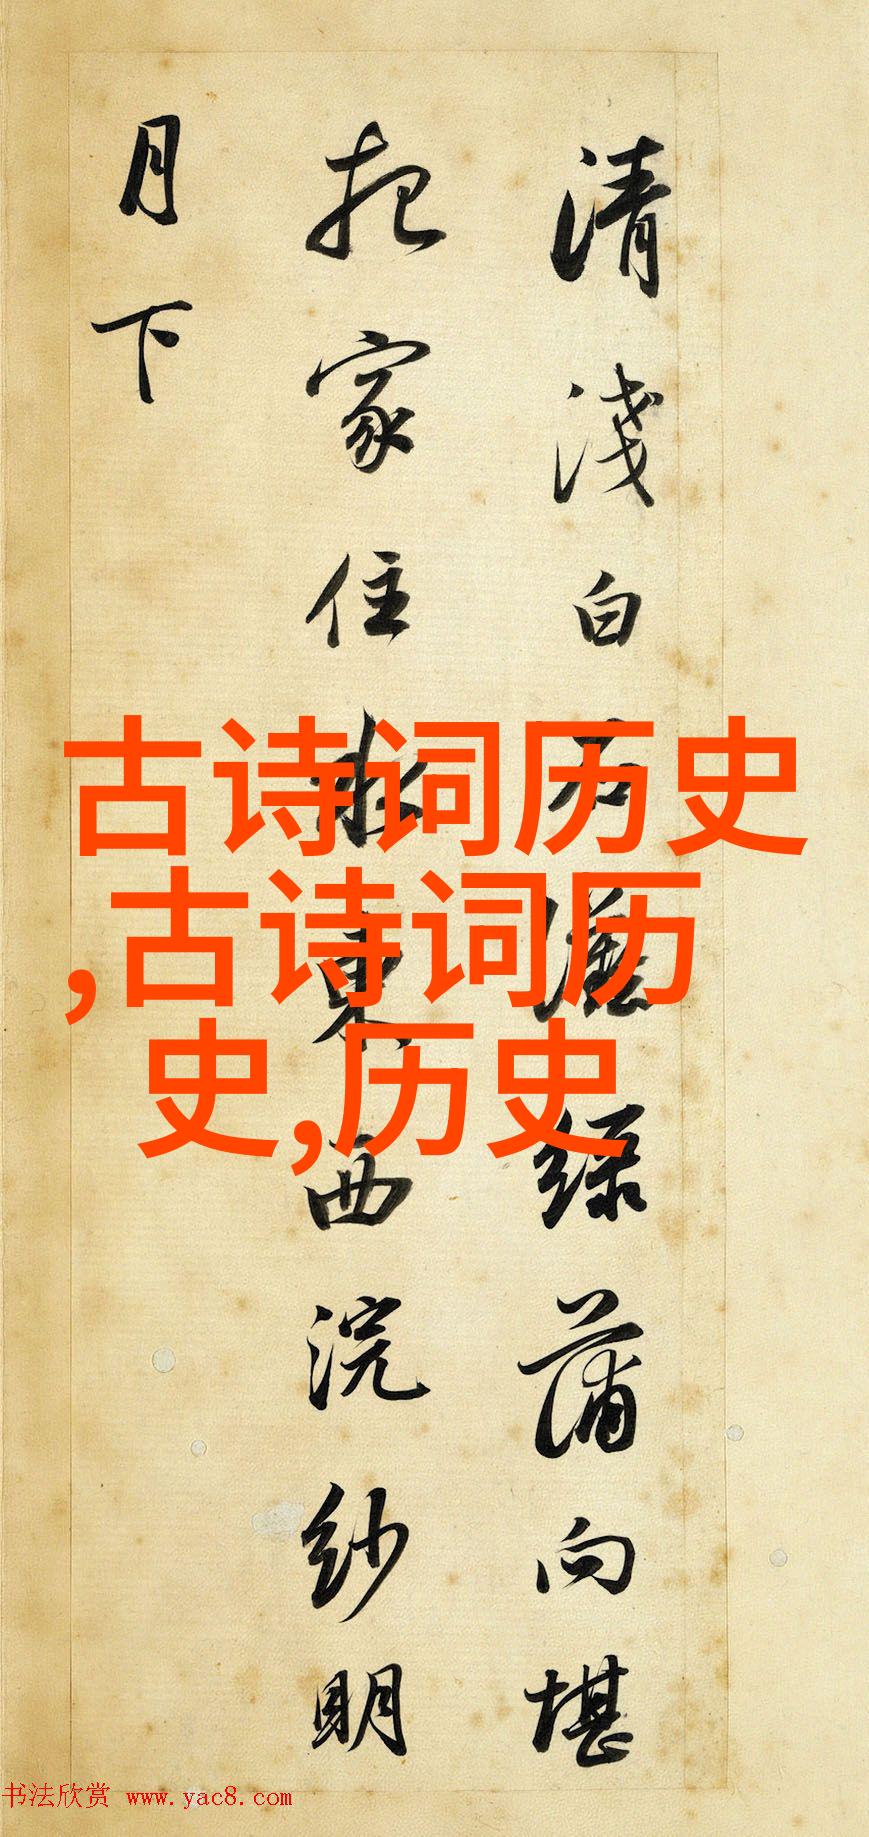 清淺白石灘綠蒲向堪
把家住水東西浣紗明
月下
古诗词历史
,古诗词历
史,历史
书法欣赏 www.yac8.com